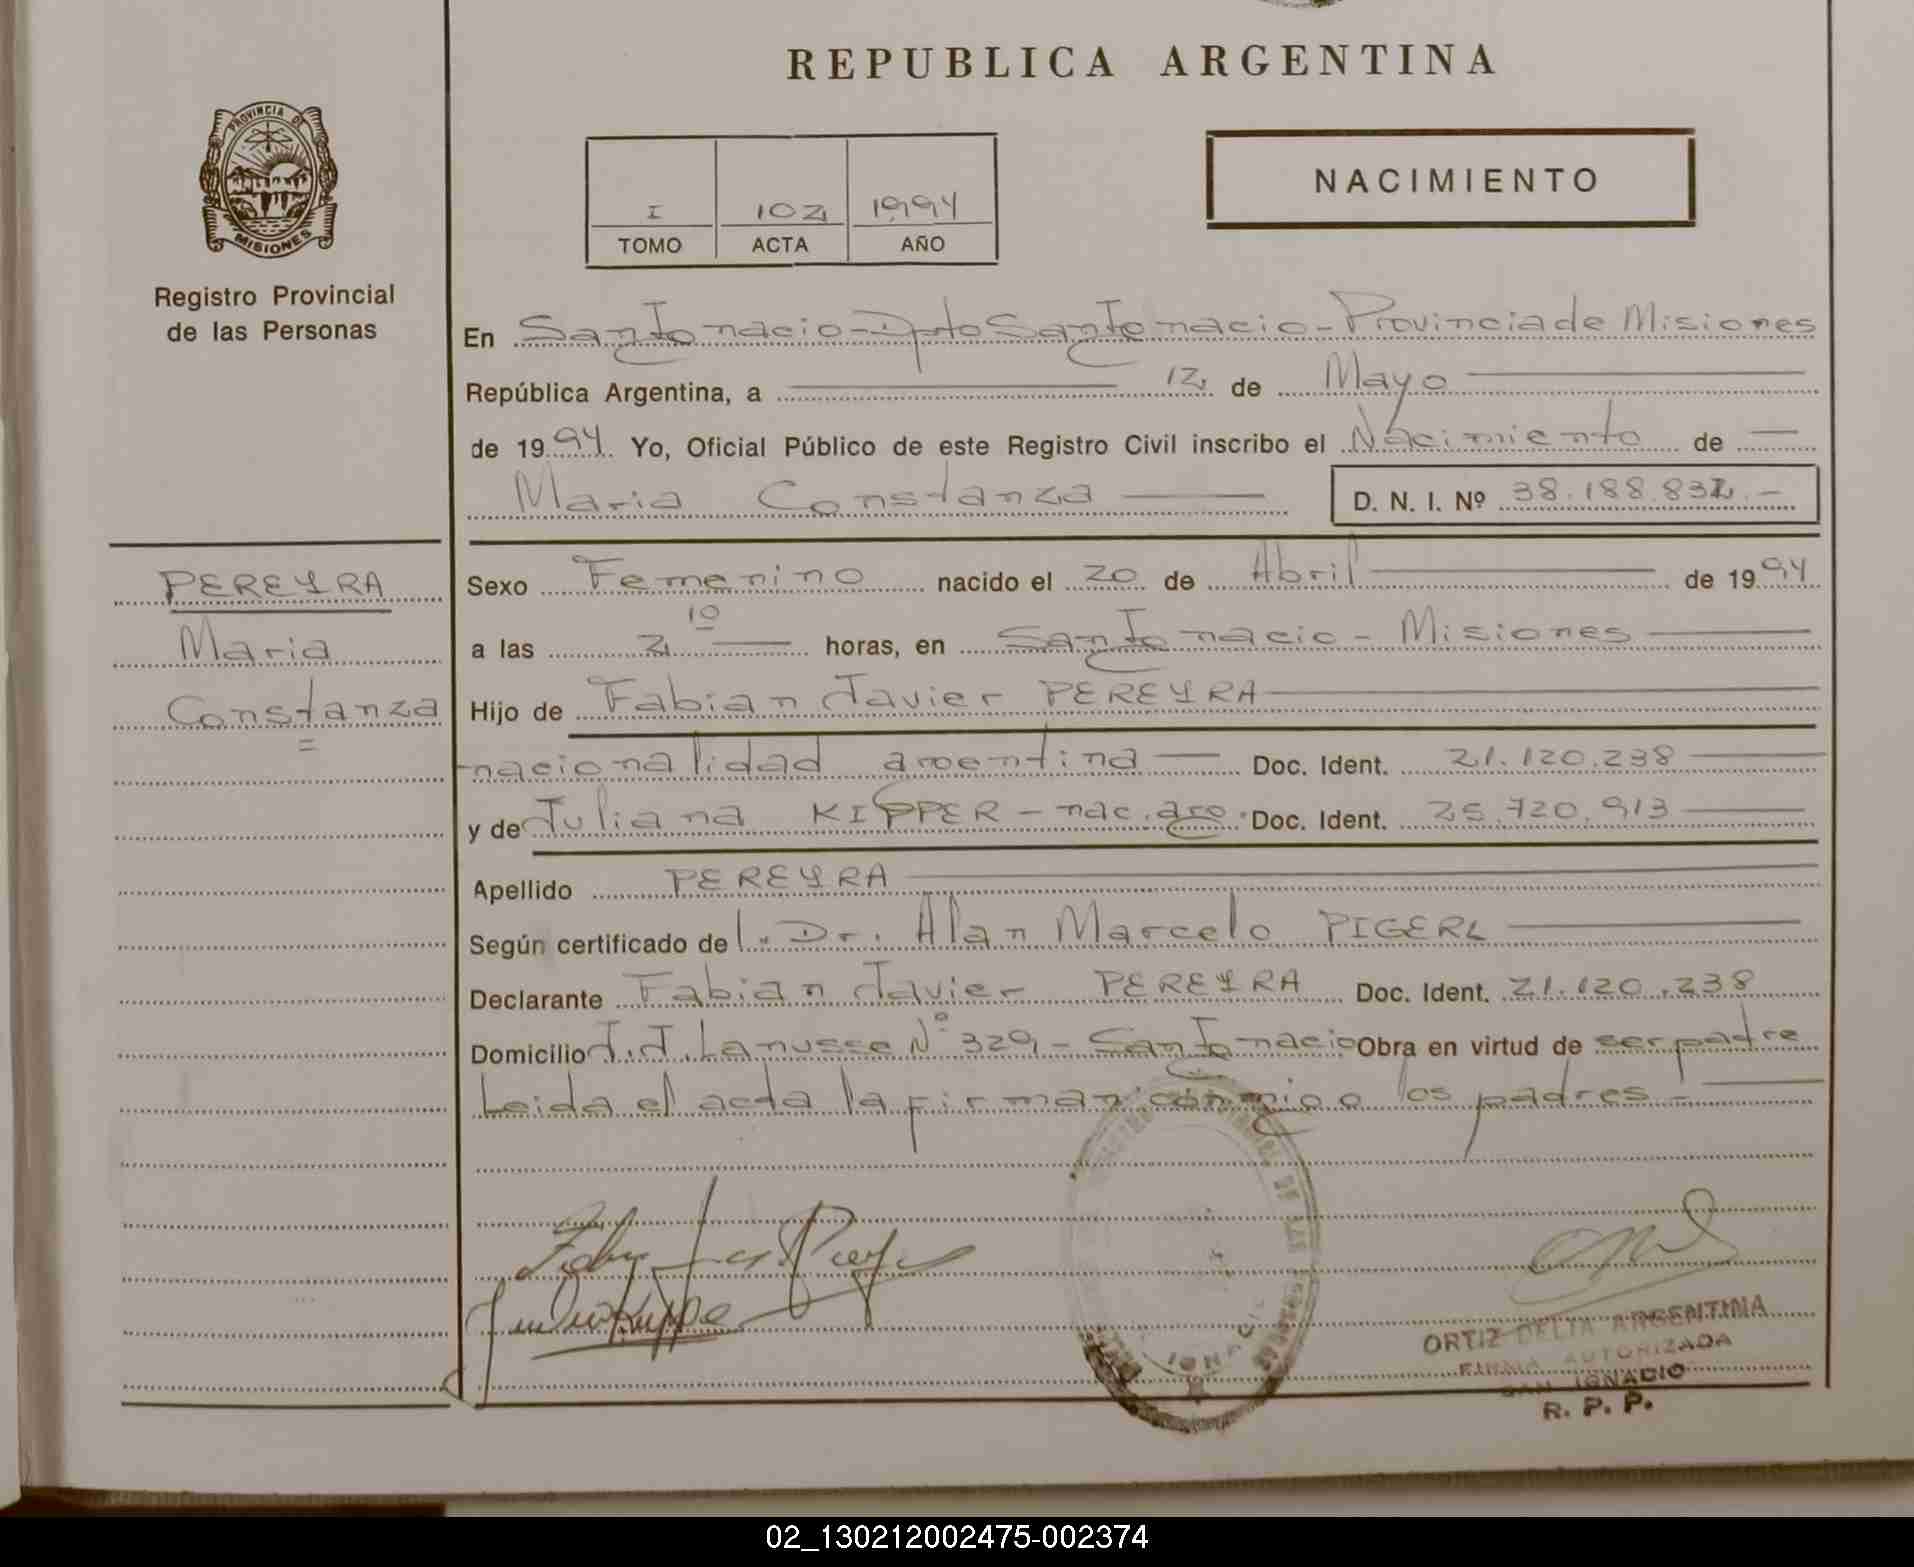 REPUBLICA ARGENTINA
PROVINCIA DE
MISIONES
Registro Provincial
de las Personas
I 102 1994
TOMO ACTA AÑO
NACIMIENTO
En San Ignacio - Dpto San Ignacio - Provincia de Misiones
República Argentina, a 12 de Mayo
de 1994 Yo, Oficial Público de este Registro Civil inscribo el Nacimiento de
Maria Constanza D. N. I. Nº 38.188.832.-
PEREYRA
Maria
Constanza
=
Sexo Femenino nacido el 20 de Abril de 1994
a las 2 10 horas, en San Ignacio - Misiones
Hijo de Fabian Javier PEREYRA
nacionalidad argentina Doc. Ident. 21.120.238
y de Juliana KIPPER - nac. arg. Doc. Ident. 25.720.913
Apellido PEREYRA
Según certificado de l. Dr. Alan Marcelo PIGERL
Declarante Fabian Javier PEREYRA Doc. Ident. 21.120.238
Domicilio J.J. Lanusse Nº 329 - San Ignacio Obra en virtud de ser padre
Leida el acta la firman conmigo los padres -
ORTIZ DELIA ARGENTINA
FIRMA AUTORIZADA
SAN IGNACIO
R. P. P.
02_130212002475-002374